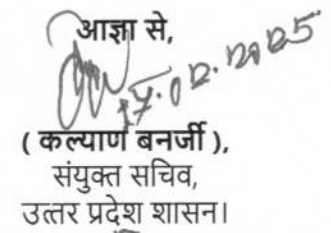 आज्ञा से,
17.02.2025
( कल्याण बनर्जी ),
संयुक्त सचिव,
उत्तर प्रदेश शासन।